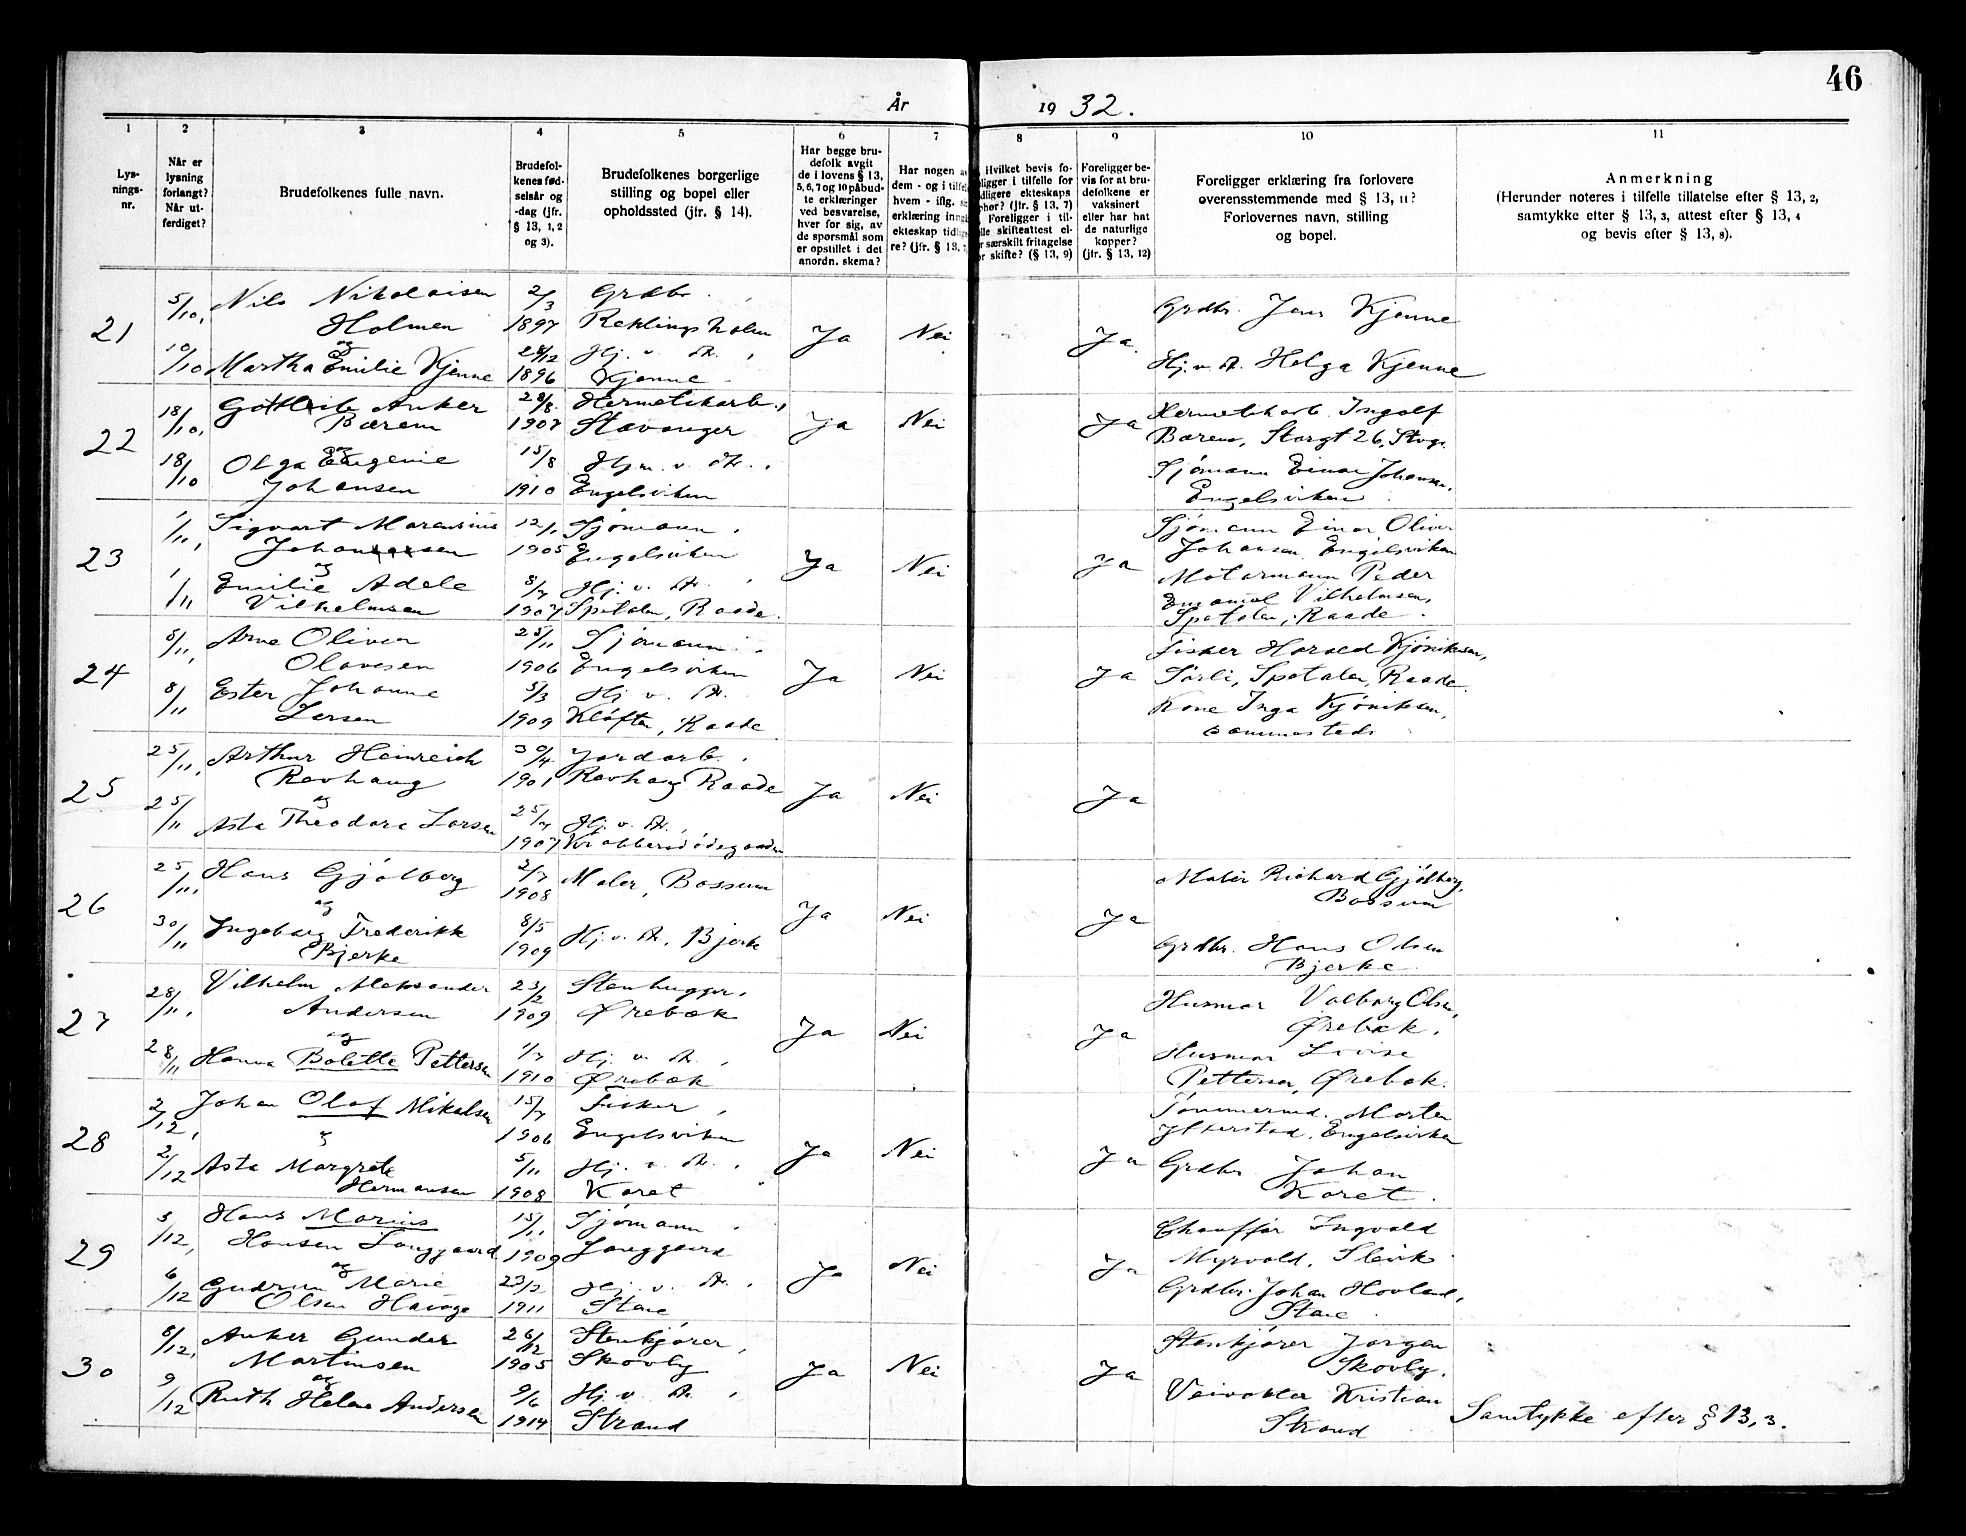 46
År 1932.
1 2 3 4 5 6 7 8 9 10 11
Lysnings-nr.
Når er lysning forlangt? Når utferdiget?
Brudefolkenes fulle navn.
Brudefolkenes fødselsår og -dag (jfr. § 13, 1, 2 og 3).
Brudefolkenes borgerlige stilling og bopel eller opholdssted (jfr. § 14).
Har begge brudefolk avgit de i lovens § 13, 5, 6, 7 og 10 påbudte erklæringer ved besvarelse, hver for sig, av de spørsmål som er opstillet i det anordn. skema?
Har nogen av dem - og i tilfelle hvem - iflg. erklæring inngått ekteskap tidligere? (jfr. § 13,
Hvilket bevis foreligger i tilfelle for tidligere ekteskaps ophør? (jfr. § 13, 7) Foreligger i tilfelle skifteattest eller særskilt fritagelse for skifte? (§ 13, 9)
Foreligger bevis for at brudefolkene er vaksinert eller har hat de naturlige kopper? (jfr. § 13, 12)
Foreligger erklæring fra forlovere overensstemmende med § 13, 11? Forlovernes navn, stilling og bopel.
Anmerkning
(Herunder noteres i tilfelle tillatelse efter § 13, 2, samtykke efter § 13, 3, attest efter § 13, 4 og bevis efter § 13, 8).
21
5/10, Nils Nikolaisen 2/3 Grdbr.
Holmen 1897 Reklingsholm Ja Nei Ja.
og
10/10 Martha Emilie Kjenne 28/12 Hj. v. M.,
1896 Kjenne
Grdbr. Jens Kjenne
Hj. v. M. Helga Kjenne
22
18/10, Gottlieb Anker 28/8. Hermetikarb.,
Bærem 1907 Stavanger Ja Nei Ja
og
18/10 Olga Eugenie 15/8 Hjm. v. M.,
Johansen 1910 Engelsviken
Hermetikarb. Ingolf
Bærem, Storgt 26, Stvgr.
Sjømann Einar Johansen,
Engelsviken
23
1/11, Sigvart Marensius 12/1 Sjømann,
Johansen 1905 Engelsviken Ja Nei Ja
og
1/11 Emilie Adele 8/7 Hj. v. M.,
Vilhelmsen 1907 Spetalen, Raade.
Sjømann Einar Oliver
Johansen, Engelsviken
Motormann Peder
Emanuel Vilhelmsen,
Spetalen, Raade.
24
8/11, Arne Oliver 25/11 Sjømann,
Olavesen 1906 Engelsviken Ja Nei Ja
8/11 Ester Johanne 5/3 Hj. v. M.
Larsen 1909 Kløften, Raade
Fisker Harald Kjøniksen,
Sørli, Spetalen, Raade.
Kone Inga Kjøniksen,
sammesteds
25
25/11, Arthur Heinreich 30/4 Jordarb.,
Ravhaug 1901 Ravhaug Raade Ja Nei Ja
og
25/11 Asta Theodora Larsen 25/7 Hj. v. M.,
1907
26
25/11, Hans Gjølberg 2/7 Maler, Bossum
og 1908 Ja Nei Ja
30/11 Ingeborg Frederikke 8/5 Hj. v. M., Bjerke
Bjerke 1909
Maler Richard Gjølberg,
Bossum
Grdbr. Hans Olsen
Bjerke
27
28/11, Vilhelm Aleksander 23/2 Stenhugger,
Andersen 1909 Ørebæk Ja Nei Ja
og
28/11 Hanna Bolette Pettersen 1/7 Hj. v. M.,
1910 Ørebæk
Husmor Valborg Olsen,
Ørebæk.
Husmor Lovise
Pettersen, Ørebæk.
28
2/12, Johan Olaf Mikalsen 15/7 Fisker,
og 1906 Engelsviken Ja Nei Ja
2/12 Asta Margrete 5/11 Hj. v. M.,
Hermansen 1908 Karet
Tømmermd. Marten
Engelsviken
Grdbr. Johan
Karet.
29
5/12, Hans Marius 15/11 Sjømann,
Hansen Langgaard 1909 Langgaard Ja Nei Ja
og
6/12 Gudrun Marie 23/2 Hj. v. M.,
Olsen Hauge 1911 Stene
Chauffør Ingvald
Myrvold, Slevik
Grdbr. Johan Hovland,
Stene
30
8/12, Anker Gunder 26/12 Stenkjører,
Martinsen 1905 Skovly Ja Nei Ja
og
9/12 Ruth Helene Andersen 9/6 Hj. v. M.,
1914 Strand
Stenkjører Jørgen
Skovly.
Veivokter Kristian
Strand
Samtykke efter § 13, 3.